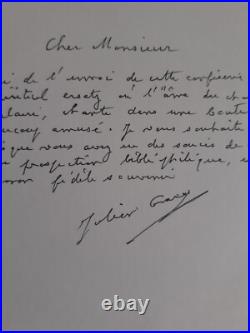 Cher Monsieur
i de l'envoi de cette confiserie
ersatz où l'âme du
chante dans une
amusé. Je vous souhaite
que vous avez eu des soucis de
prospection bibliophilique,
mon fidèle souvenir
Julien Gracq